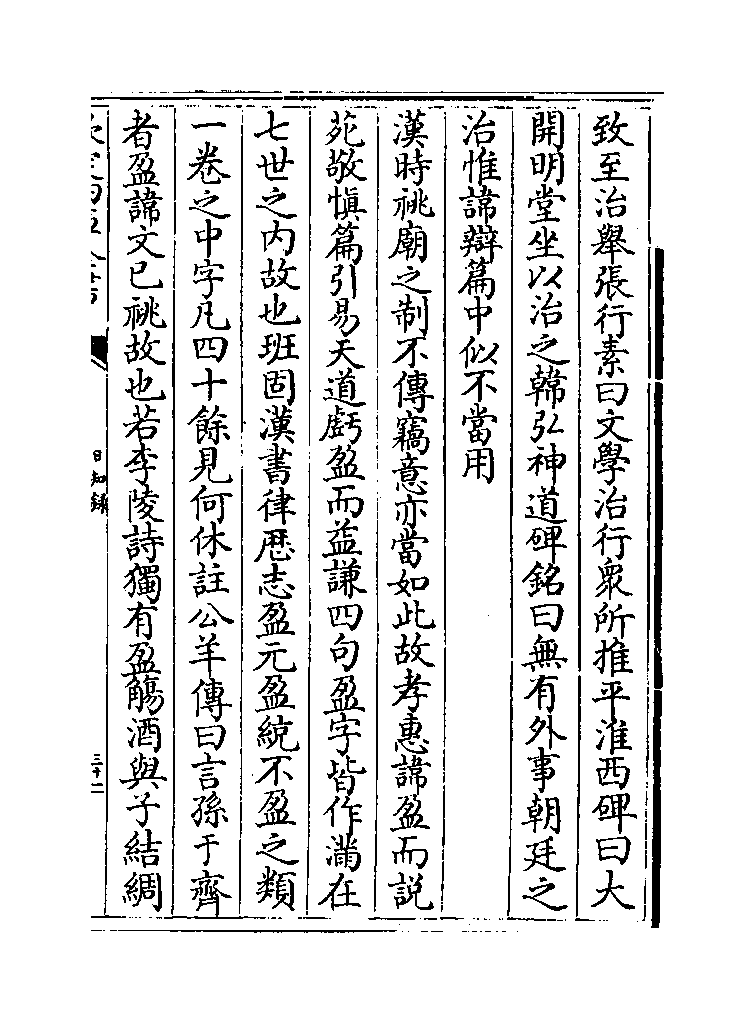 致至治舉張行素曰文學治行衆所推平淮西碑曰大
開明堂坐以治之韓弘神道碑銘曰無有外事朝廷之
治惟諱辯篇中似不當用
漢時祧廟之制不傳竊意亦當如此故孝惠諱盈而說
苑敬慎篇引易天道虧盈而益謙四句盈字皆作滿在
七世之内故也班固漢書律厯志盈元盈統不盈之類
一卷之中字凡四十餘見何休註公羊傳曰言孫于齊
者盈諱文已祧故也若李陵詩獨有盈觴酒與子結綢
日知錄
三十二